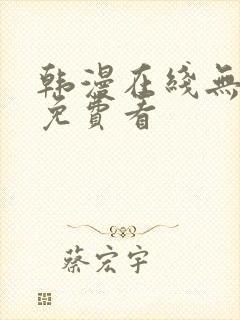 韩漫在线無
免費看
蔡宏宇